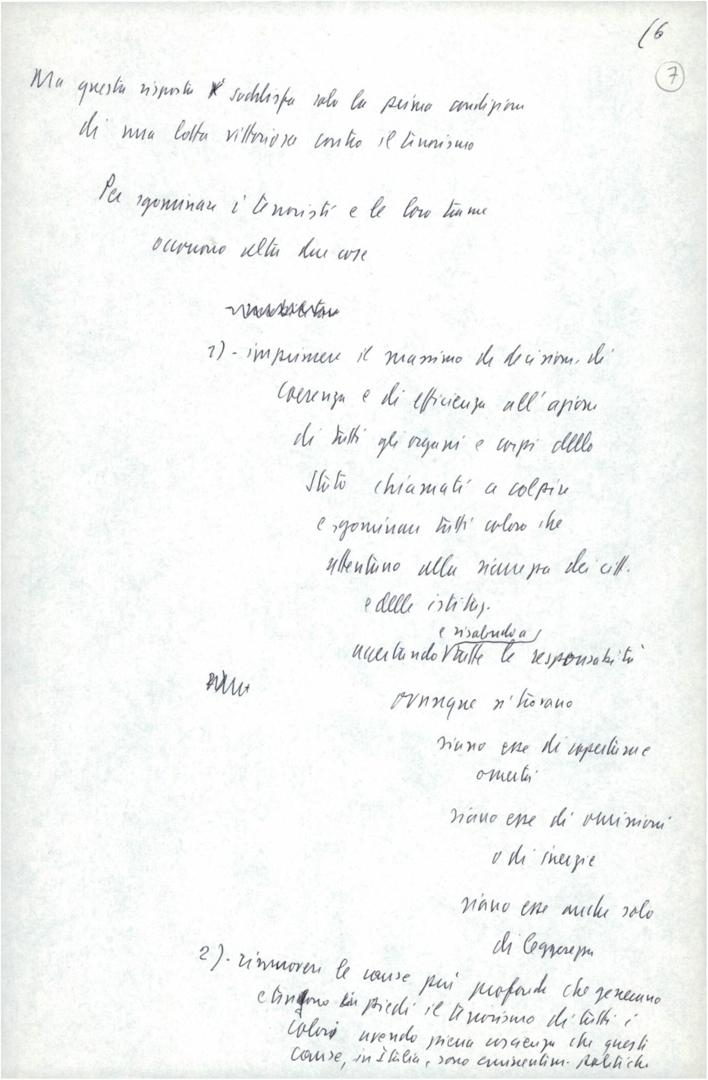 16
7
Ma questa risposta soddisfa solo la prima condizione
di una lotta vittoriosa contro il terrorismo
Per sgominare i terroristi e le loro trame
occorrono altre due cose
1) - imprimere il massimo di decisione, di
coerenza e di efficienza all'azione
di tutti gli organi e corpi dello
Stato chiamati a colpire
e sgominare tutti coloro che
attentano alla sicurezza dei citt.
e delle istituz.
e risalendo a
accertando tutte le responsabilità
ovunque si trovano
siano esse di coperture
omertà
siano esse di omissioni
o di inerzie
siano esse anche solo
di leggerezza
2) - rimuovere le cause più profonde che generano
e tengono in piedi il terrorismo di tutti i
colori avendo piena coscienza che queste
cause, in Italia, sono eminentem. politiche